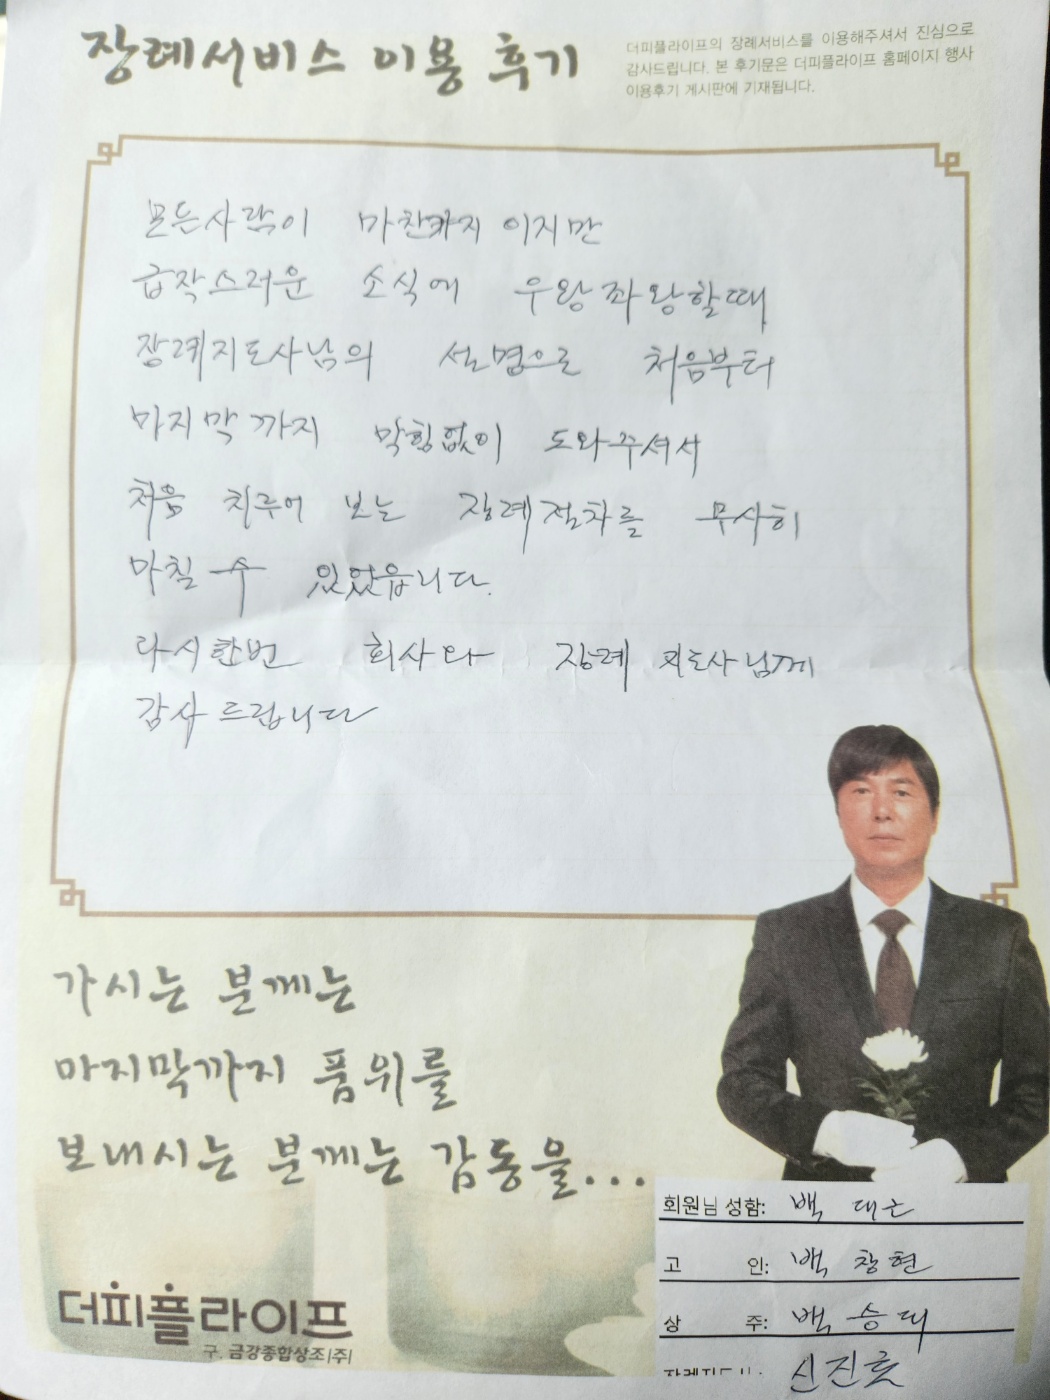 장례서비스 이용 후기
더피플라이프의 장례서비스를 이용해주셔서 진심으로
감사드립니다. 본 후기문은 더피플라이프 홈페이지 행사
이용후기 게시판에 기재됩니다.
모든사람이 마찬까지 이지만
급작스러운 소식에 우왕좌왕할때
장례지도사님의 설명으로 처음부터
마지막까지 막힘없이 도와주셔서
처음 치루어 보는 장례절차를 무사히
마칠 수 있었읍니다.
다시한번 회사와 장례 지도사님께
감사드립니다
가시는 분께는
마지막까지 품위를
보내시는 분께는 감동을...
회원님 성함: 백 대근
고 인: 백 창현
상 주: 백 승대
신진훈
더피플라이프
구. 금강종합상조(주)